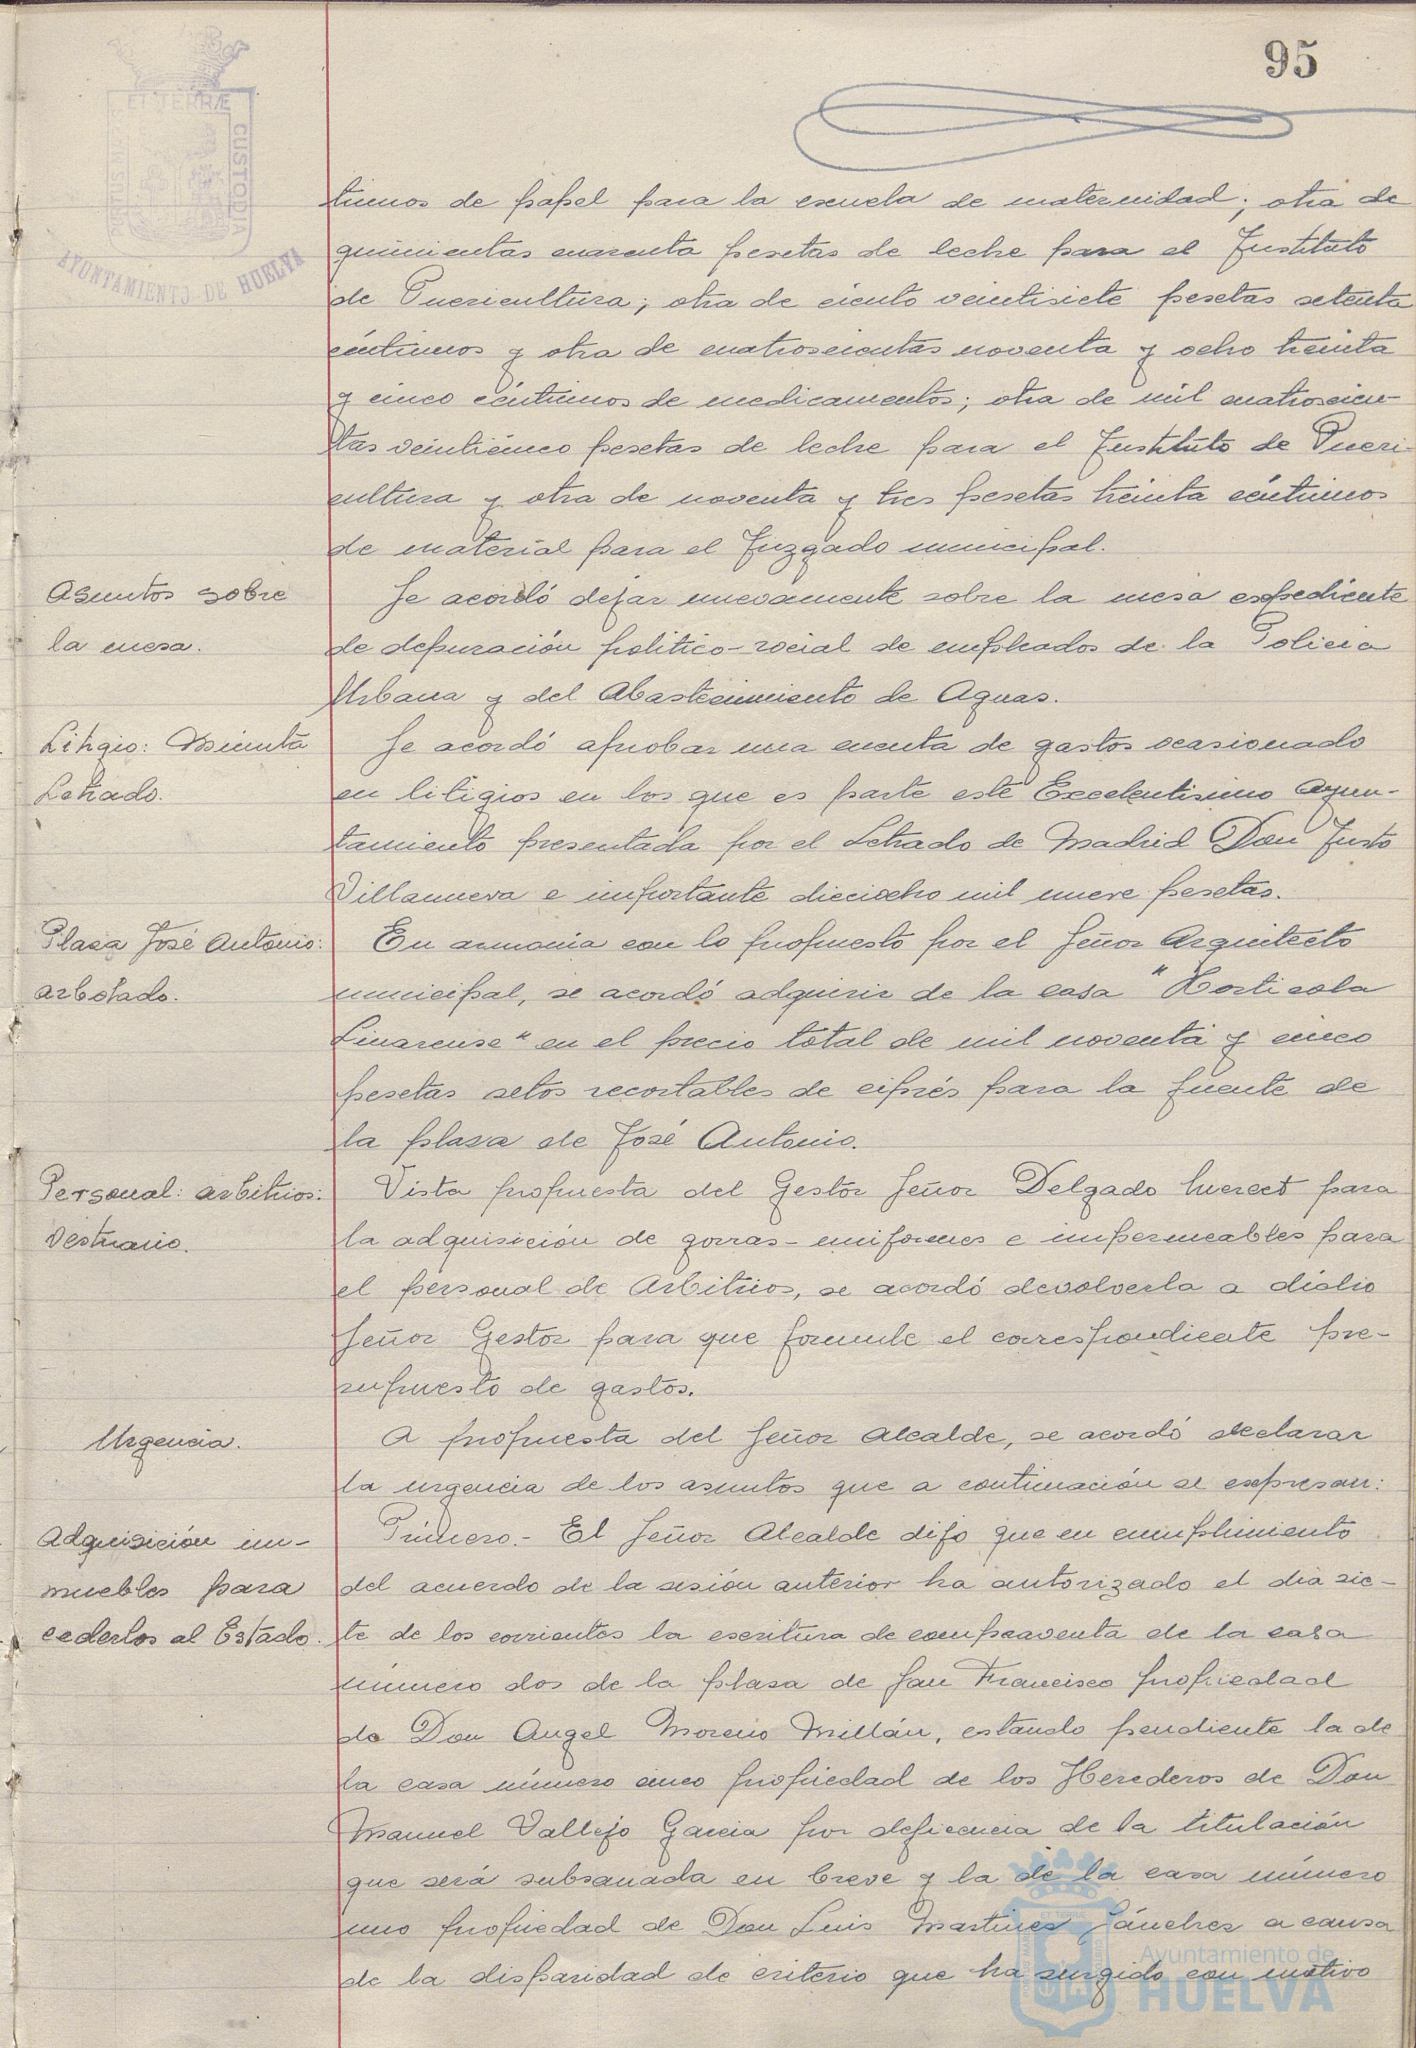 95
ET TERRÆ
CUSTODIA
AYUNTAMIENTO DE HUELVA
timos de papel para la escuela de maternidad; otra de
quinientas cuarenta pesetas de leche para el Instituto
de Puericultura; otra de ciento veintisiete pesetas setenta
céntimos y otra de cuatrocientas noventa y ocho treinta
y cinco céntimos de medicamentos; otra de mil cuatrocien-
tas veinticinco pesetas de leche para el Instituto de Pueri-
cultura y otra de noventa y tres pesetas treinta céntimos
de material para el Juzgado municipal.
Asuntos sobre
la mesa.
Se acordó dejar nuevamente sobre la mesa expediente
de depuración politico-social de empleados de la Policia
Urbana y del Abastecimiento de Aguas.
Litigio: Minuta
Letrado.
Se acordó aprobar una cuenta de gastos ocasionado
en litigios en los que es parte este Excelentisimo Ayun-
tamiento presentada por el Letrado de Madrid Don Justo
Villanueva e importante dieciocho mil nueve pesetas.
Plaza José Antonio:
arbolado.
En armonia con lo propuesto por el Señor Arquitecto
municipal, se acordó adquirir de la casa "Horticola
Linarense" en el precio total de mil noventa y cinco
pesetas setos recortables de ciprés para la fuente de
la plaza de José Antonio.
Personal: arbitrios:
Vestuario.
Vista propuesta del Gestor Señor Delgado para
la adquisición de gorras-uniformes e impermeables para
el personal de Arbitrios, se acordó devolverla a dicho
Señor Gestor para que formule el correspondiente pre-
supuesto de gastos.
Urgencia.
A propuesta del Señor Alcalde, se acordó declarar
la urgencia de los asuntos que a continuación se expresan:
Adquisición in-
muebles para
cederlos al Estado.
Primero.- El Señor Alcalde dijo que en cumplimiento
del acuerdo de la sesión anterior ha autorizado el dia sie-
te de los corrientes la escritura de compraventa de la casa
número dos de la plaza de San Francisco propiedad
de Don Angel Moreno Millán, estando pendiente la de
la casa número cinco propiedad de los Herederos de Don
Manuel Vallejo Garcia por deficencia de la titulación
que será subsanada en breve y la de la casa número
uno propiedad de Don Luis Martinez Sánchez a causa
de la disparidad de criterio que ha surgido con motivo
Ayuntamiento de
HUELVA